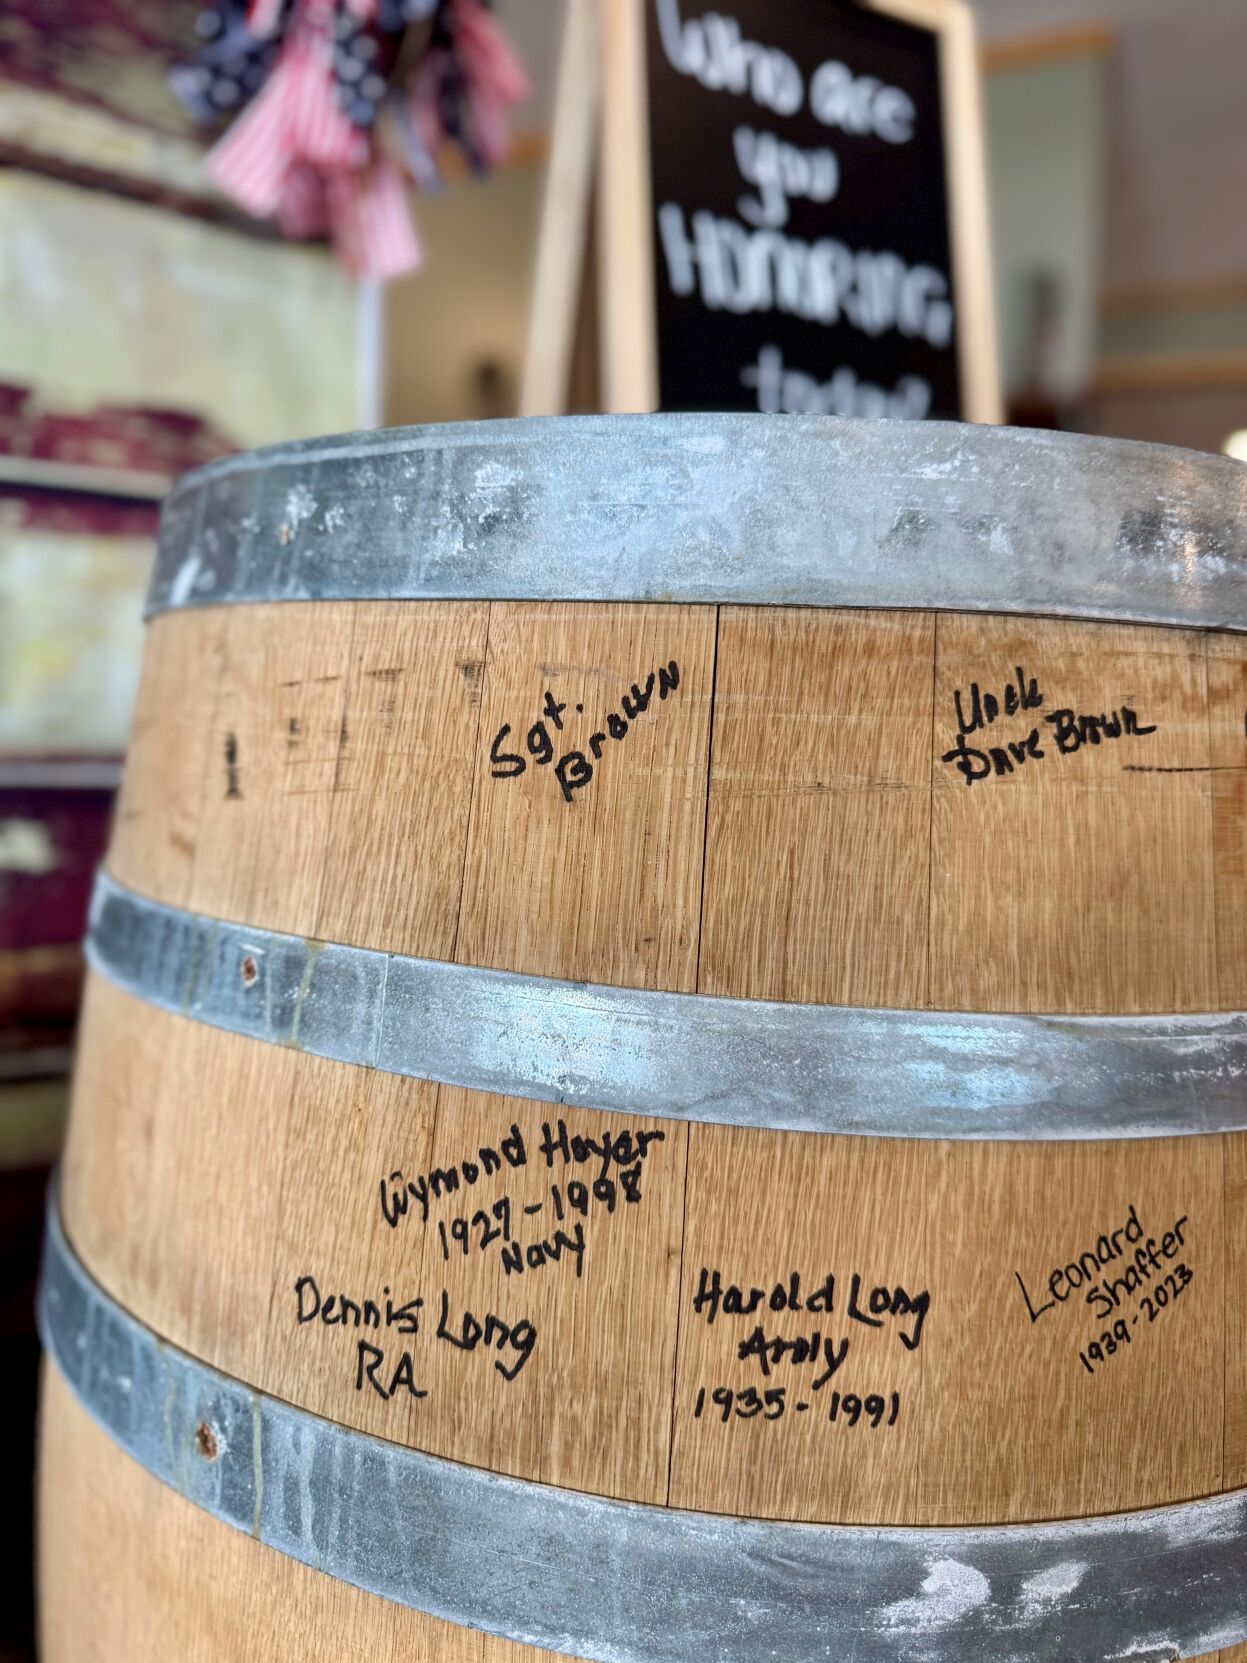 Who are
you
HONORING
today?
Sgt.
Brown
Uncle
Dave Brown
Wymond Hoyer
1927-1998
Navy
Dennis Long
RA
Harold Long
Army
1935-1991
Leonard
Shaffer
1939-2023